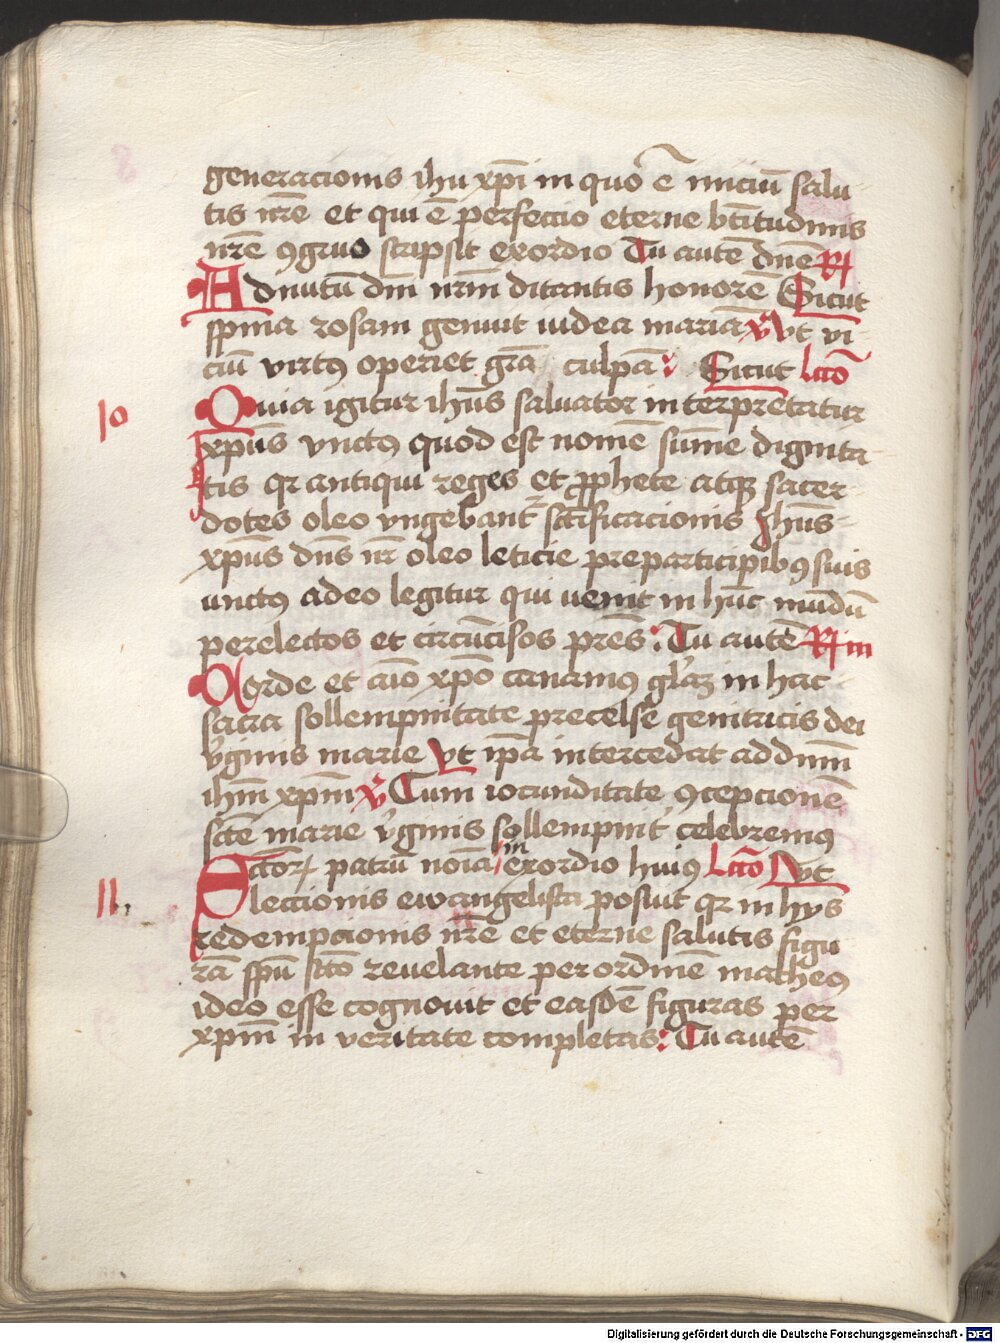 generacionis ihu xp̄i in quo ē iniciū salu
tis nr̄e et qui ē perfeccio eterne bt̄itudinis
nr̄e ꝯgruo scripsit exordio Tu autē dn̄e R
Ad nutū dn̄i nr̄m ditantis honorē Sicut
spina rosam genuit iudea mariā V̄ Vt vi
ciū virtꝰ operiet gr̄a culpā Sicut Lcc̄o
10
Quia igitur ihūs saluator interpretatur
xp̄us vnctꝰ quod est nomē sūme dignita
tis qr antiqui reges et prophete atqꝫ sacer
dotes oleo vngebant̄ sc̄ificacionis Jhūs
xp̄us dn̄s nr̄ oleo leticie preparticipibꝰ suis
unctꝰ adeo legitur qui uenit in hūc mūdū
per electos et circūcisos pr̄es : Tu autē R m
Corde et aīo xp̄o canamꝰ glāꝫ in hac
sacra sollempnitate precelse genitricis dei
v̄ginis marie Vt ip̄a intercedat ad dnm̄
ihm̄ xp̄m V̄ Cum iocunditate ꝯcepcionē
sc̄te marie v̄ginis sollempnit̄ celebremꝰ
Sctoꝝ patrū noīa in exordio huiꝰ Lcc̄o Vt
11
lectionis ewangelista posuit qꝫ in hys
redempcionis nr̄e et eterne salutis figu
rā sp̄u sc̄to reuelante per ordinē matheꝰ
ideo esse cognouit et easdē figuras per
xp̄m in veritate completas : Tu autē
Digitalisierung gefördert durch die Deutsche Forschungsgemeinschaft - DFG